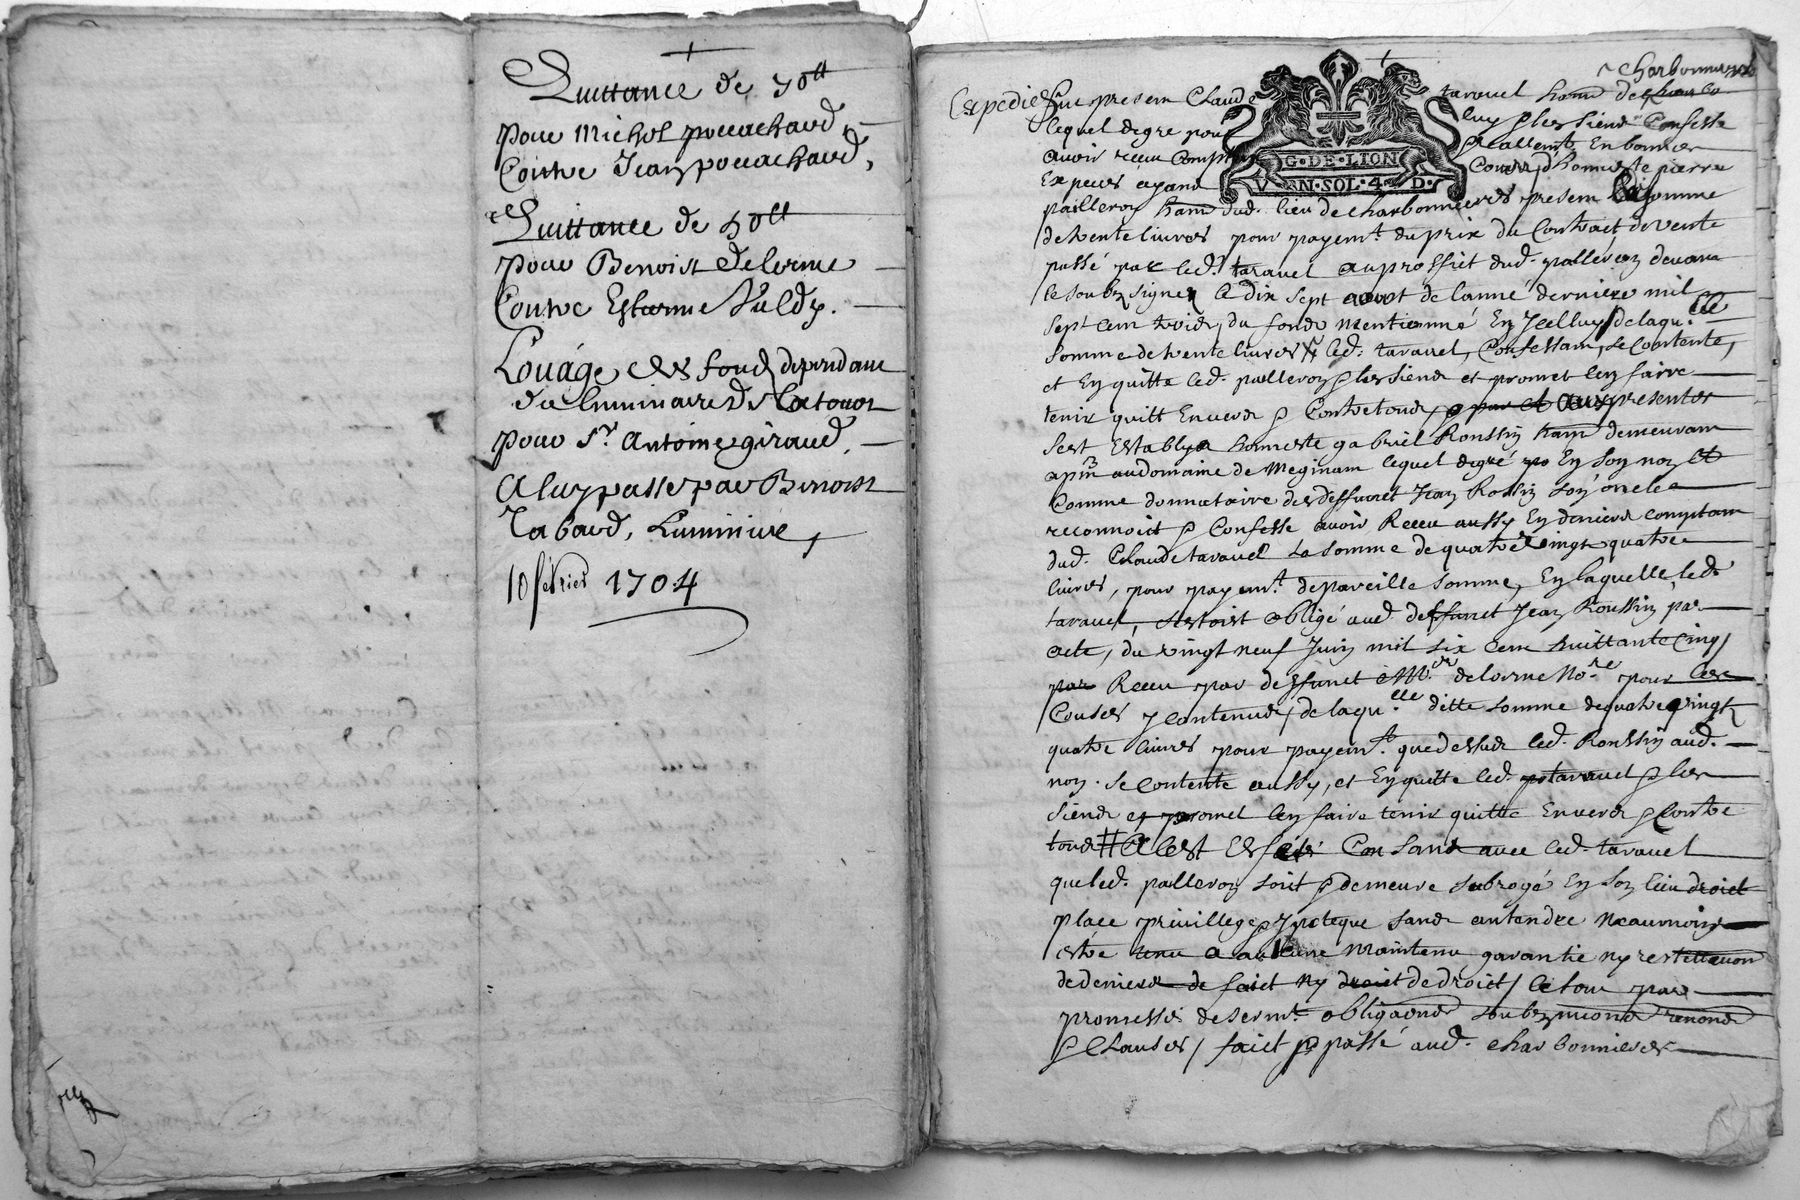 Quittance de 70tt
pour Michel pouuachaud,
Contre Jean pouuachaud,
Quittance de 50tt
pour Benoist Delorme
Contre Estienne
Louage des fondz dependant
du luminaire de
pour Sr. Antoine giraud,
A luy passe par Benoist
Tabaud, Luminier,
10 fevrier 1704
Expedié
charbonnieres
Fut present Claude taravel habt de
lequel de gre pour luy & les siens Confesse
avoir receu comptant & reallemt. En bonnes
Especes ayant Cours, d'honneste pierre
palleron habt dud. lieu de charbonnieres present La somme
de trente livres pour payemt. du prix du Contract de vente
passé par led. taravel au proffict dud. palleron devant
le soubzsigné le dix sept aoust de lanné derniere mil
sept cent trois, du fondz mentionné En Jcelluy de laqu.lle
somme de trente livres led. taravel, Confessant, se Contente,
et En quitte led. palleron & les siens et promet len faire
tenir quitt Envers & Contre tous, aux presentes
sest Estably honneste gabriel Roussin habt demeurant
au domaine de Meginant lequel de gré En son nom Et
Comme donnataire de deffunct Jean Rossin son oncle
reconnoict & Confesse avoir Receu aussy En deniers comptant
dud. Claude taravel La somme de quatre vingt quatre
livres, pour payemt. de pareille somme, En laquelle led.
taravel, sestoist obligé aud. deffunct Jean Roussin par
acte, du vingt neuf Juin mil six cent huittante Cinq
par Receu par deffunct Mre. delorme No.re pour les
Causes y contenues, de laqu.lle ditte somme de quatre vingt
quatre livres pour payemt. que dessus led. Roussin aud.
nom. se contente aussy, et En quitte led. taravel & les
siens et promet len faire tenir quitte Envers & Contre
tous # avec led. taravel
que led. palleron soit & demeure subrogé En son lieu droict
place privillege & Jpoteque sans entendre neaumoins
estre tenu a aucune maintenue garantie ny restitution
de deniers de faict ny droict de droict, le tout par
promesse de sermt. obligaons soubzmions renons
& Clauses, faict & passé aud. charbonnieres
G·DE·LION
V N·SOL·4·D·